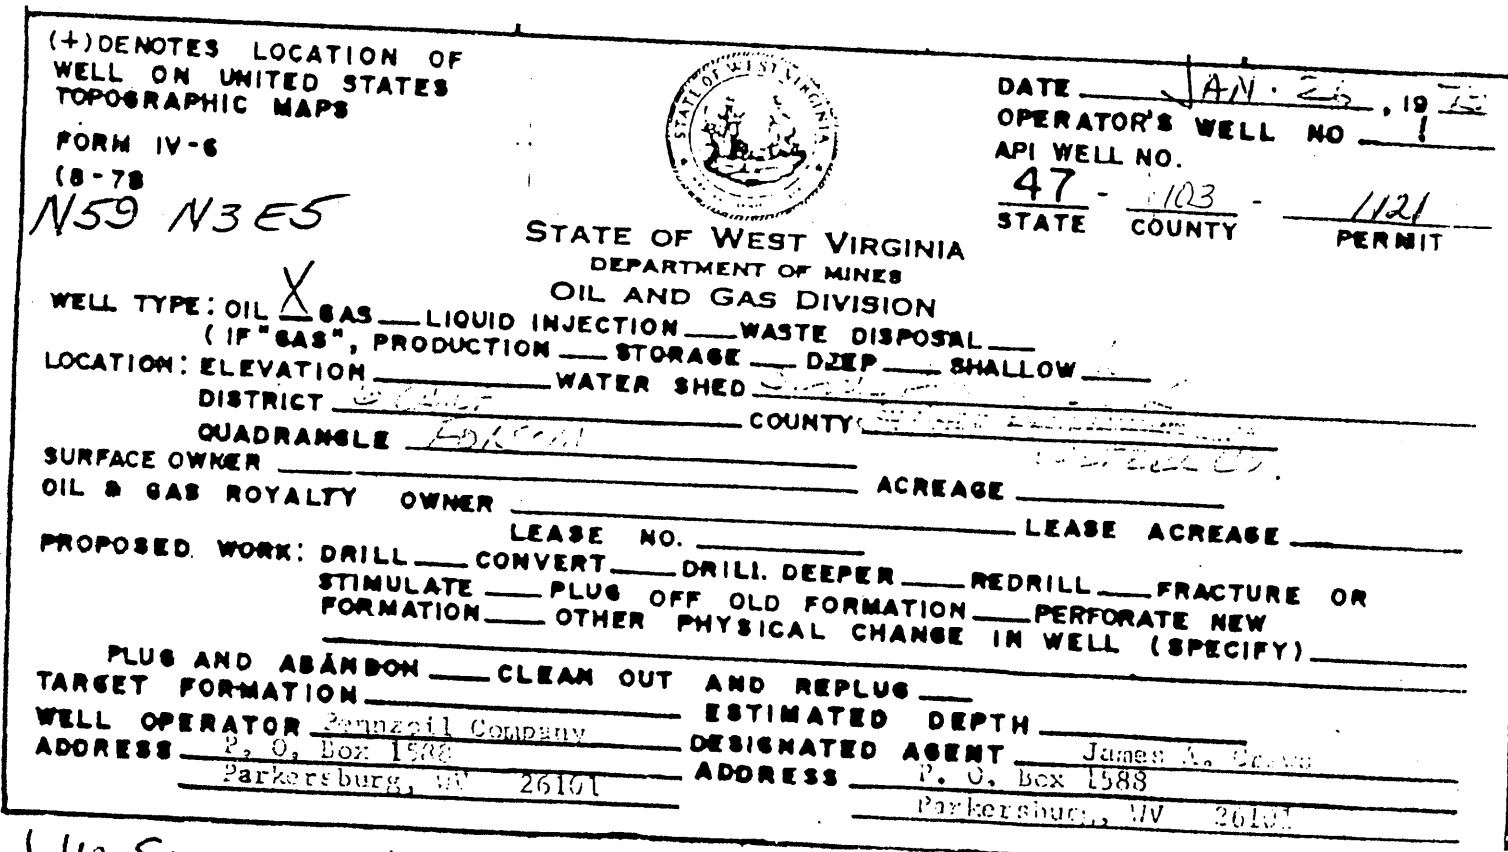 (+) DENOTES LOCATION OF
WELL ON UNITED STATES
TOPOGRAPHIC MAPS
FORM IV-6
(8-78
N59 N3E5
STATE OF WEST VIRGINIA
STATE OF WEST VIRGINIA
DEPARTMENT OF MINES
OIL AND GAS DIVISION
DATE JAN. 26, 19
OPERATOR'S WELL NO 1
API WELL NO.
47 - 103 - 1121
STATE COUNTY PERMIT
WELL TYPE: OIL X GAS ___ LIQUID INJECTION ___ WASTE DISPOSAL ___
(IF "GAS", PRODUCTION ___ STORAGE ___ DEEP ___ SHALLOW ___
LOCATION: ELEVATION ___ WATER SHED
DISTRICT COUNTY
QUADRANGLE
SURFACE OWNER ___ ACREAGE ___
OIL & GAS ROYALTY OWNER ___ LEASE ACREAGE ___
LEASE NO. ___
PROPOSED WORK: DRILL ___ CONVERT ___ DRILL DEEPER ___ REDRILL ___ FRACTURE OR
STIMULATE ___ PLUG OFF OLD FORMATION ___ PERFORATE NEW
FORMATION ___ OTHER PHYSICAL CHANGE IN WELL (SPECIFY) ___
PLUG AND ABANDON ___ CLEAN OUT AND REPLUG ___
TARGET FORMATION ___ ESTIMATED DEPTH ___
WELL OPERATOR Pennzoil Company DESIGNATED AGENT James A.
ADDRESS P. O. Box 1588 ADDRESS P. O. Box 1588
Parkersburg, WV 26101 Parkersburg, WV 26101